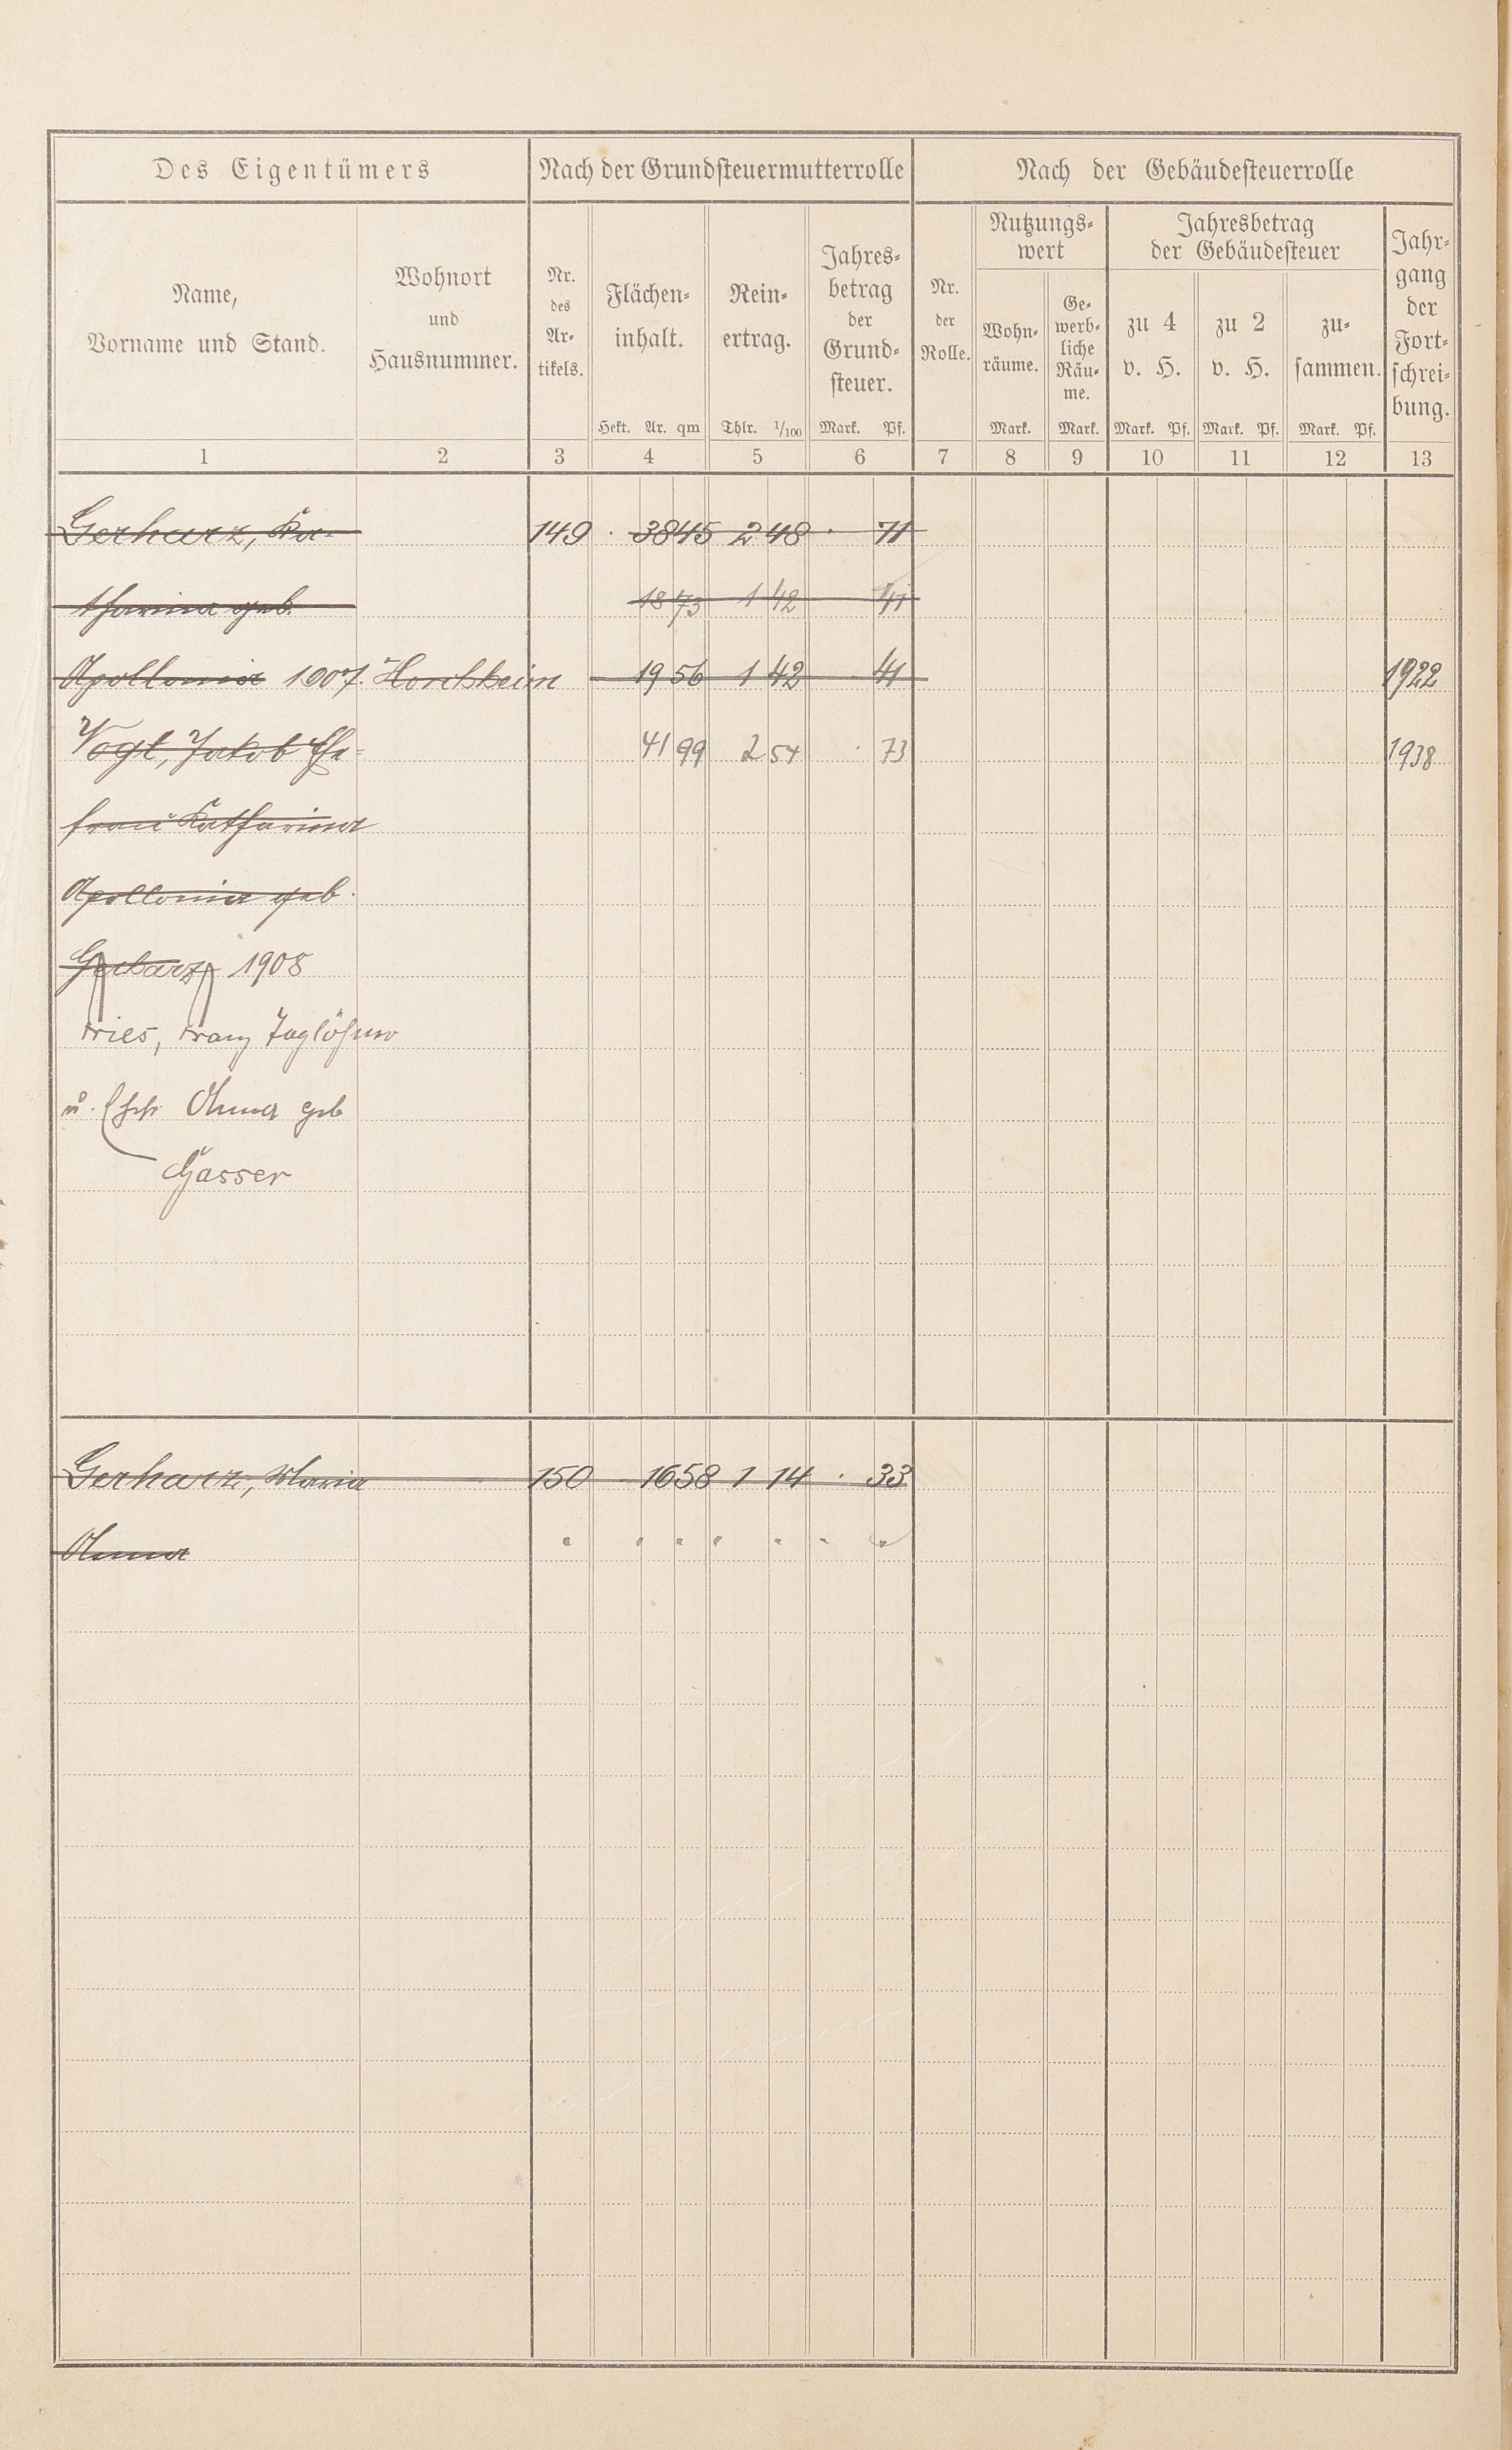 Des Eigentümers Nach der Grundsteuermutterrolle Nach der Gebäudesteuerrolle
Name, Vorname und Stand.
Wohnort und Hausnummer.
Nr. des Artikels.
Flächen-inhalt.
Hekt. Ar. qm
Rein-ertrag.
Thlr. 1/100
Jahres-betrag der Grund-steuer.
Mark. Pf.
Nr. der Rolle.
Nutzungs-wert
Wohn-räume.
Mark.
Ge-werb-liche Räu-me.
Mark.
Jahresbetrag der Gebäudesteuer
zu 4 v. H.
Mark. Pf.
zu 2 v. H.
Mark. Pf.
zu-sammen.
Mark. Pf.
Jahr-gang der Fort-schrei-bung.
1 2 3 4 5 6 7 8 9 10 11 12 13
Gerharz, Ka- 149 · 38 45 2 48 · 71
tharina geb. 18 73 1 42 41
Apollonia 1907. Horchheim 19 56 1 42 · 41 1922
Vogt, Jakob Ehe- 41 99 2 54 · 73 1938
frau Katharina
Apollonia geb.
Gerharz 1908
Fries, Franz Taglöhner
u. Ehefr. Anna geb
Gasser
Gerharz, Maria 150 16 58 1 14 · 33
Anna